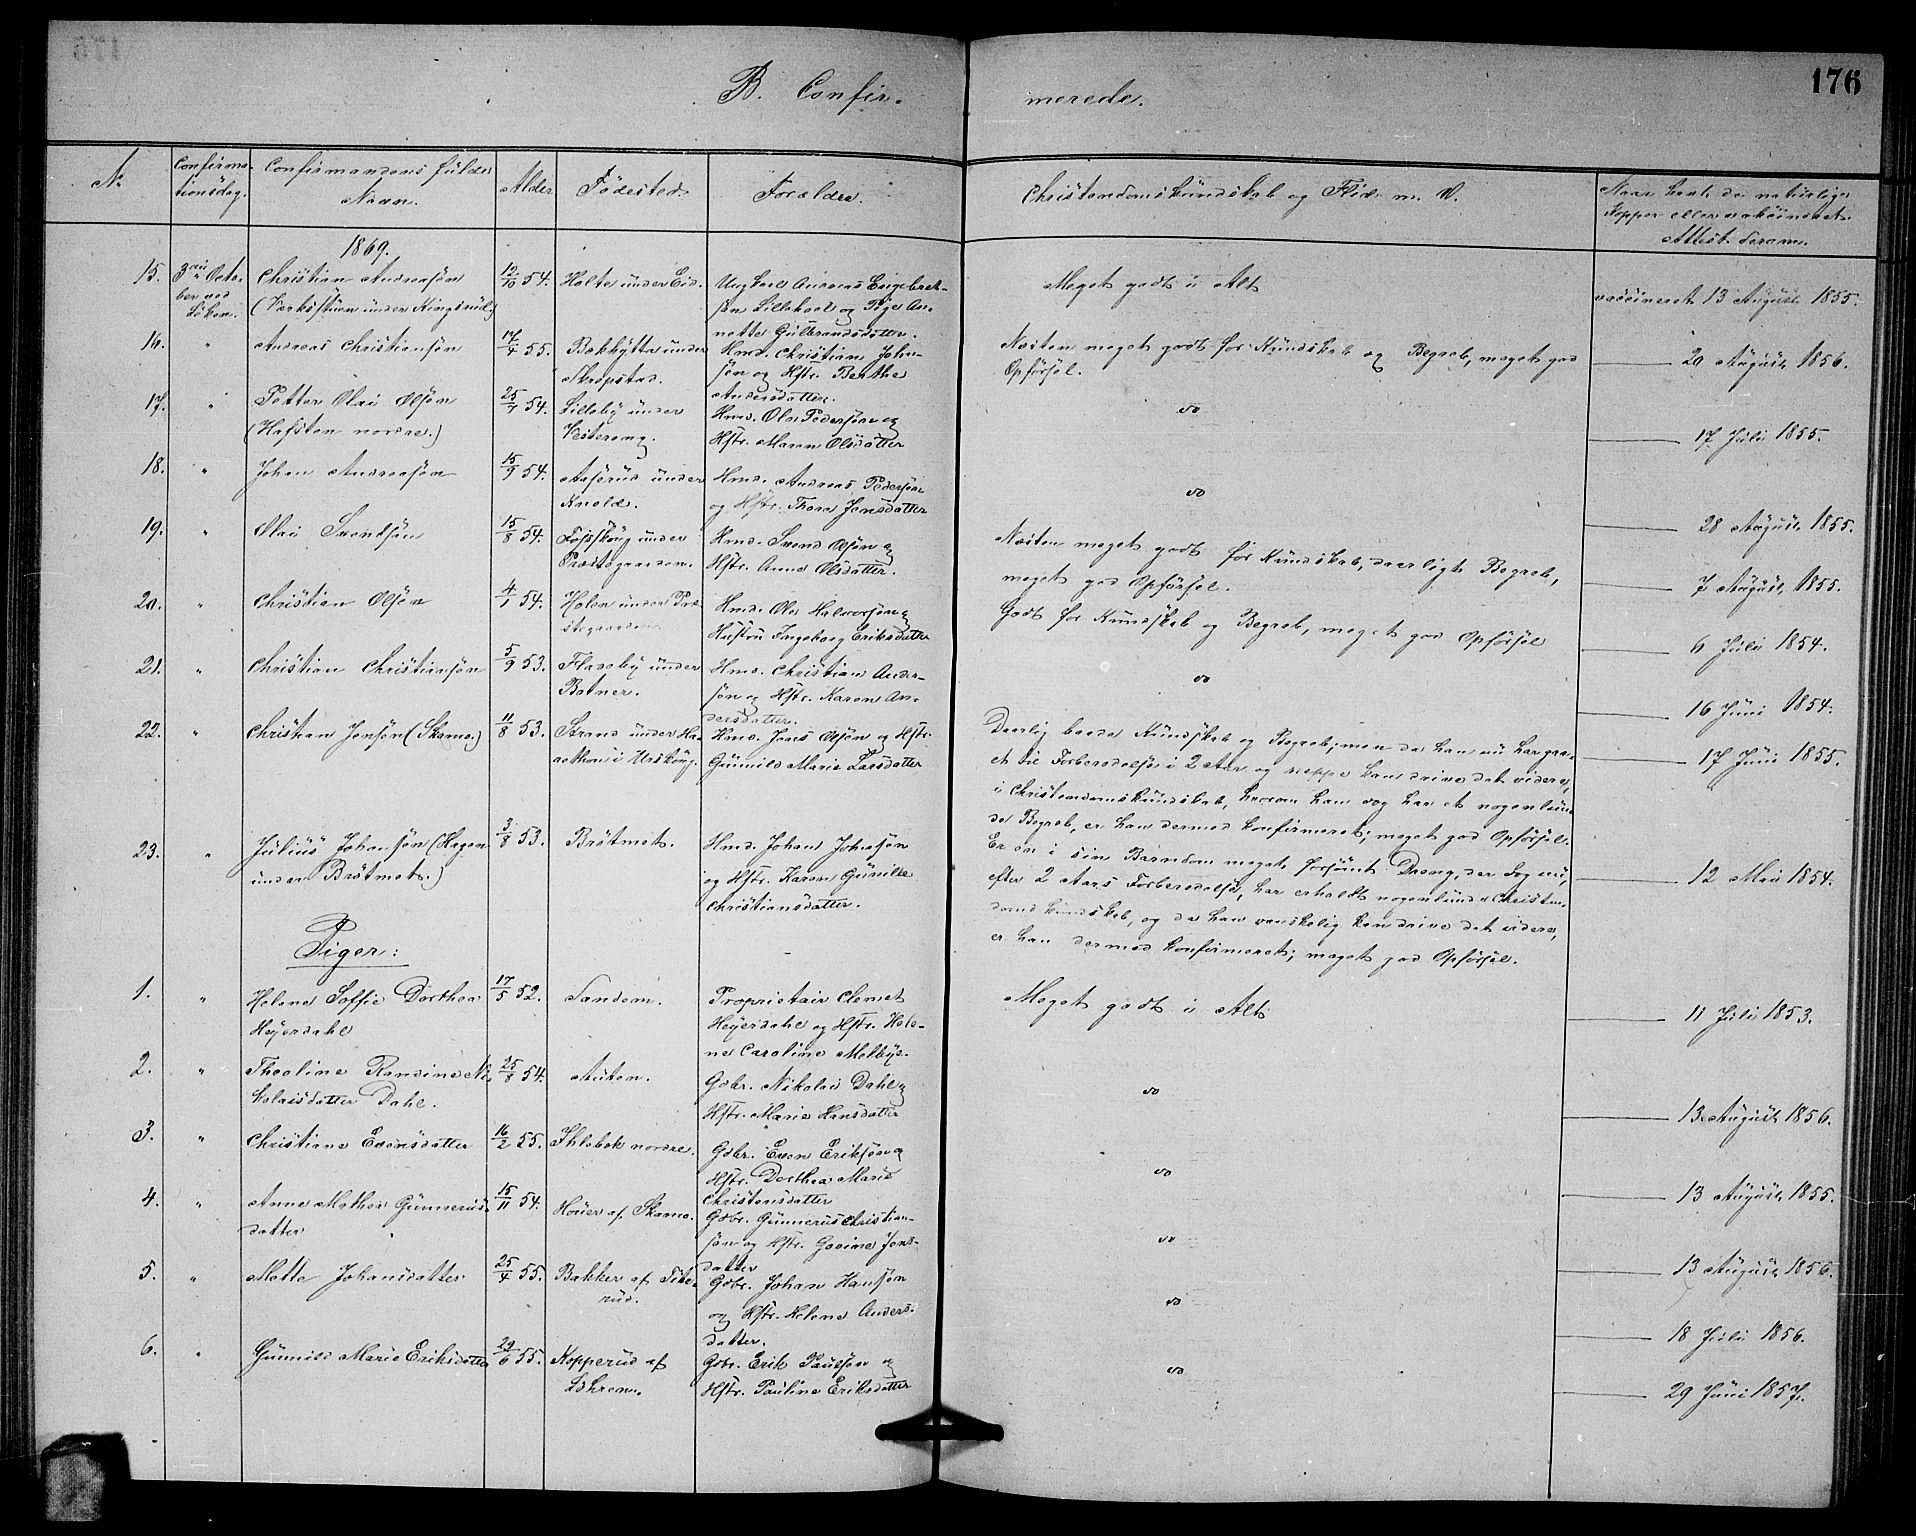 176
B. Confir- merede.
No
Confirma-
tionsdag.
Confirmandens fulde
Navn.
Alder
Fødested.
Forældre.
Christendomskundskab og Flid m. V.
Naar havt de naturlige
Kopper eller vaksineret.
Attest derom.
1869.
15. 3die Octo-
ber ved
Løken.
Christian Andreasøn
(Værksstuen under Kingsrud)
12/10 54. Holte under Eid.
Ungkarl Andreas Engebret-
søn Lillehael og Pige An-
nette Gulbrandsdatter.
Meget godt i Alt
vaccineret 13 August 1855.
16. " Andreas Christiansøn 17/4 55. Bakhytta under
Skrepstad.
Hmd. Christian Johan-
søn og Hstr. Berthe
Andersdatter.
Næsten meget godt for Kundskab og Begreb, meget god
Opførsel.
20 August 1856.
17. " Petter Olai Olsøn
(Hafsten nordre.)
25/7 54. Lilleby under
Vestereng.
Hmd. Ole Pedersøn og
Hstr. Maren Olsdatter
do
17 Juli 1855.
18. " Johan Andreasøn 15/9 54. Aaserud under
Knold.
Hmd. Andreas Pedersøn
og Hstr. Thora Jensdatter
do
28 August 1855.
19. " Olai Svendsøn 15/8 54. Fosskoug under
Præstegaarden.
Hmd. Svend Olsøn og
Hstr. Anne Olsdatter.
Næsten meget godt for Kundskab, daarligt Begreb,
meget god Opførsel.
7 August 1855.
20. " Christian Olsøn 4/1 54. Holen under Præ-
stegaarden
Hmd. Ole Halvorsøn og
Hustru Ingeborg Eriksdatter
Godt for Kundskab og Begreb, meget god Opførsel
6 Juli 1854.
21. " Christian Christiansøn 5/9 53. Flaseby under
Botner.
Hmd. Christian Ander-
søn og Hstr. Karen An-
dersdatter.
do
16 Juni 1854.
22. " Christian Jensøn (Skamo.) 11/8 53. Strand under Ha-
nethon i Urskoug.
Hmd. Jens Olsøn og Hstr.
Gunnild Marie Larsdatter
Daarlig baade Kundskab og Begreb; men da han nu har gaa-
et til Forberedelse i 2 Aar og neppe kan drive det videre,
i Christendomskundskab, hvorom han dog har et nogenlun-
de Begreb, er han dermed konfirmeret; meget god Opførsel.
17 Juni 1855.
23. " Julius Johansøn (Hagen
under Brøtmet.)
3/8 53. Brøtmet.
Hmd. Johan Johnsøn
og Hstr. Karen Gunille
Christiansdatter.
Er en i sin Barndom meget forsømt Dreng, der dog nu,
efter 2 Aars Forberedelse, har erholdt nogenlunde Christen-
domskundskab, og da han vanskelig kan drive det videre,
er han dermed konfirmeret; meget god Opførsel.
12 Mai 1854.
Piger:
1. " Helene Soffie Dorthea
Heyerdahl
17/5 52. Sandem.
Proprietair Clemet
Heyerdahl og Hstr. Hele-
ne Caroline Melbye.
Meget godt i Alt
11 Juli 1853.
2. " Theoline Randine Ni-
kolaisdatter Dahl.
25/8 54. Auten.
Gdbr. Nikolai Dahl og
Hstr. Marie Hansdatter
do
13 August 1856.
3. " Christiane Evensdatter 16/2 55. Ihlebæk nordre.
Gdbr. Even Eriksøn og
Hstr. Dorthea Marie
Christensdatter
do
13 August 1855.
4. " Anne Mathea Gunnerius-
datter
15/11 54. Houer af Skamo.
Gdbr. Gunnerus Christian-
søn og Hstr. Govine Jens-
datter
do
13 August 1856.
5. " Mette Johansdatter 25/4 55. Bakker af Tite-
rud.
Gdbr. Johan Hansøn
og Hstr. Helene Anders-
datter.
do
18 Juli 1856.
6. " Gunnild Marie Eriksdatter 29/6 55. Kopperud af
Løkren.
Gdbr. Erik Paulsøn og
Hstr. Pauline Eriksdatter
do
29 Juni 1857.